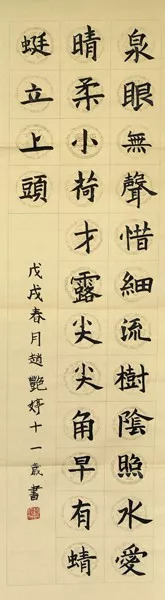 泉眼無聲惜細流樹陰照水愛
晴柔小荷才露尖尖角早有蜻
蜓立上頭
戊戌春月趙艷婷十一歲書